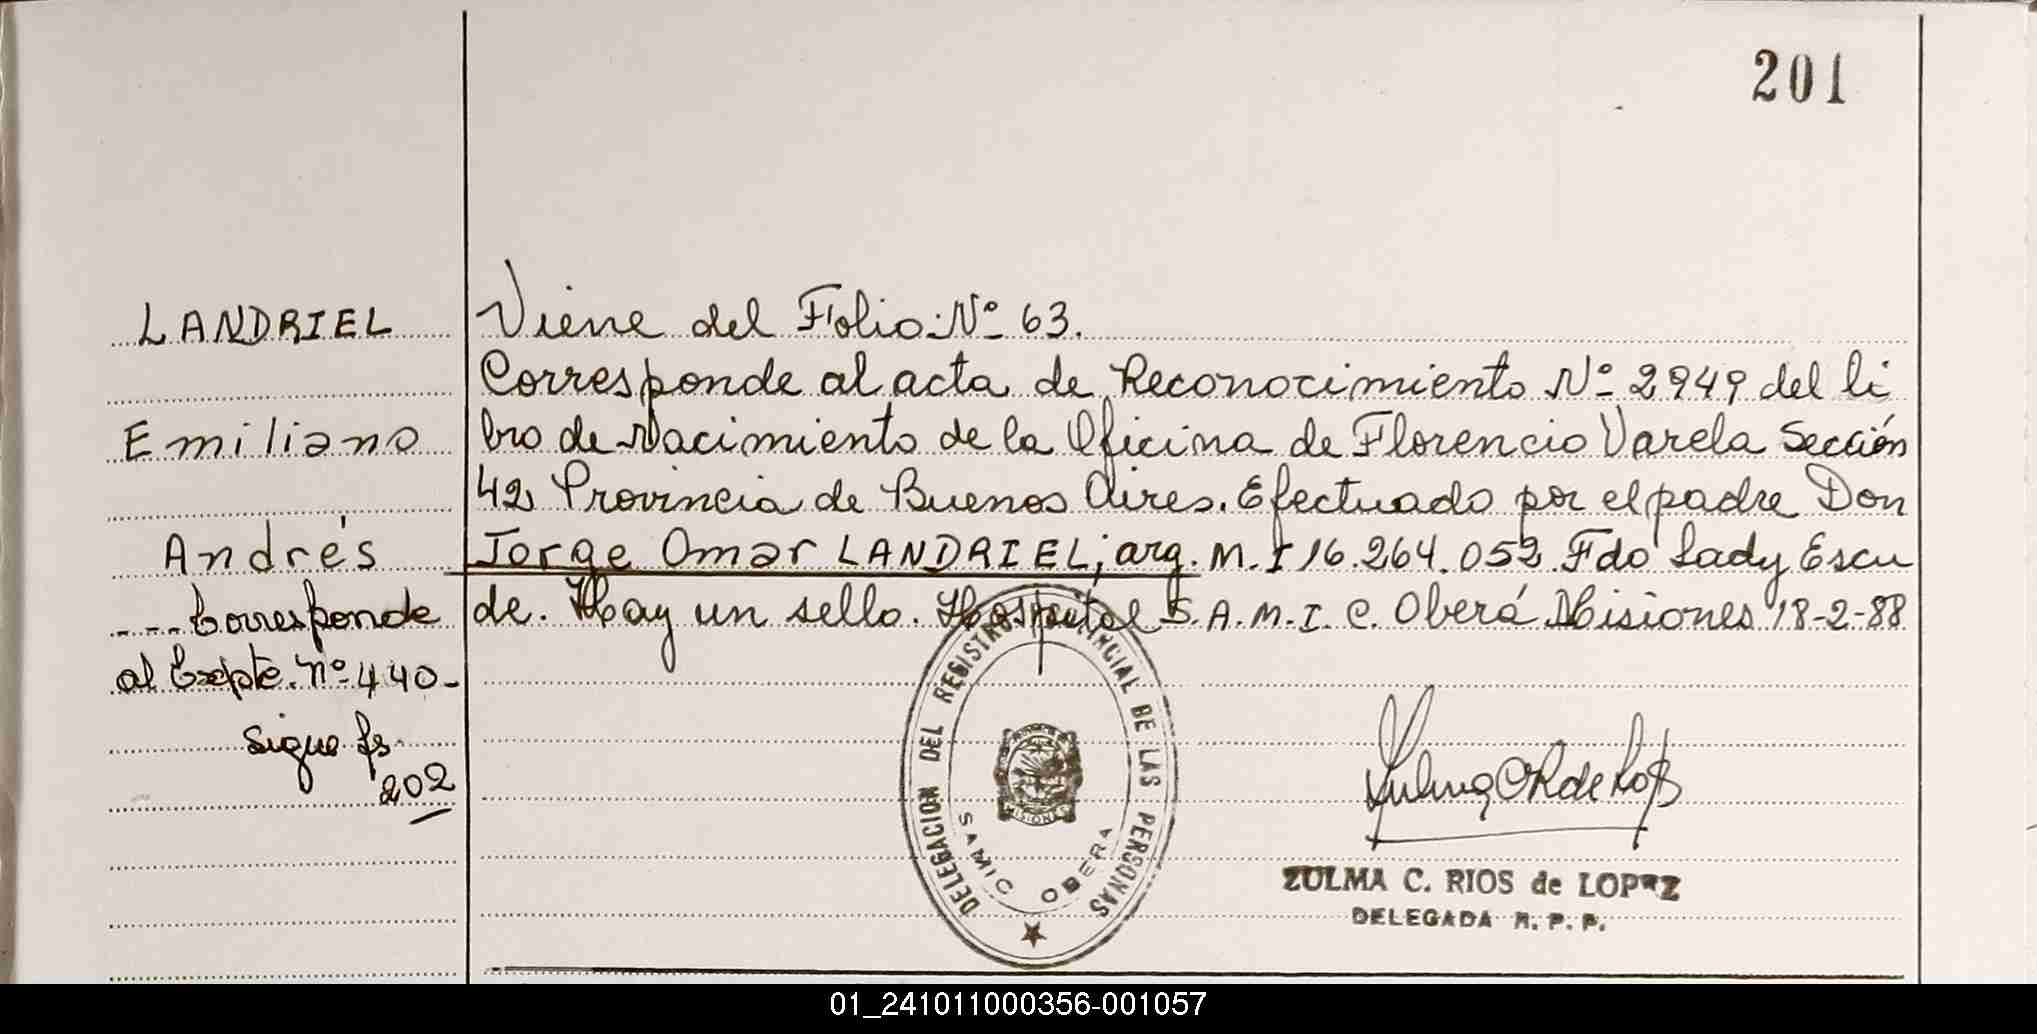 201
LANDRIEL
Emiliano
Andrés
---Corresponde
al Expte. Nº 440-
Sigue fs
202
Viene del Folio Nº 63.
Corresponde al acta de Reconocimiento Nº 2949 del li
bro de Nacimiento de la Oficina de Florencio Varela Sección
42 Provincia de Buenos Aires. Efectuado por el padre Don
Jorge Omar LANDRIEL; arg. M.I 16.264.052. Fdo Lady Escu
de. Hay un sello. Hospital S.A.M.I.C. Oberá Misiones 18-2-88
DELEGACION DEL REGISTRO PROVINCIAL DE LAS PERSONAS
SAMIC OBERA
MISIONES
ZULMA C. RIOS de LOPEZ
DELEGADA R. P. P.
01_241011000356-001057